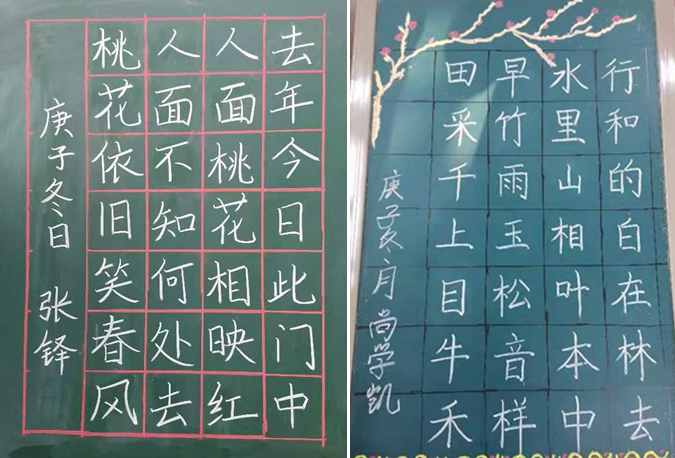 去年今日此门中
人面桃花相映红
人面不知何处去
桃花依旧笑春风
庚子冬日 张铎
行和的白在林去
水里山相叶本中
早竹雨玉松音样
田采千上目牛禾
庚子冬月尚学凯